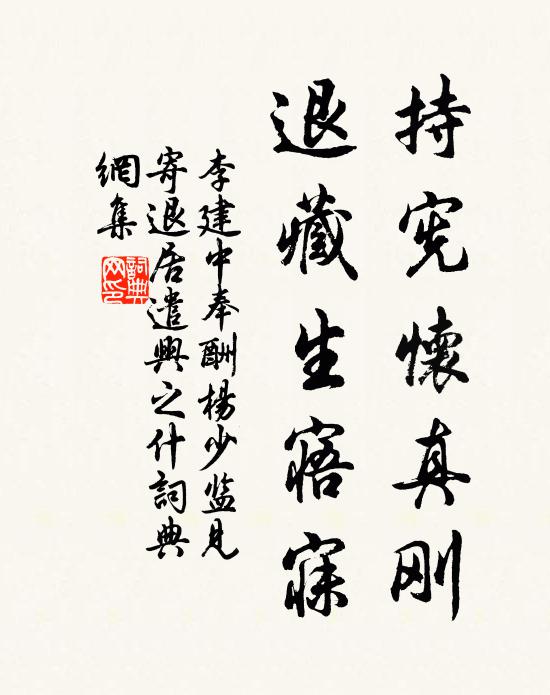 持宪懷真刚
退藏生寤寐
李建中奉酬楊少监見
寄退居遣興之什詞典
網集
詞典
网印